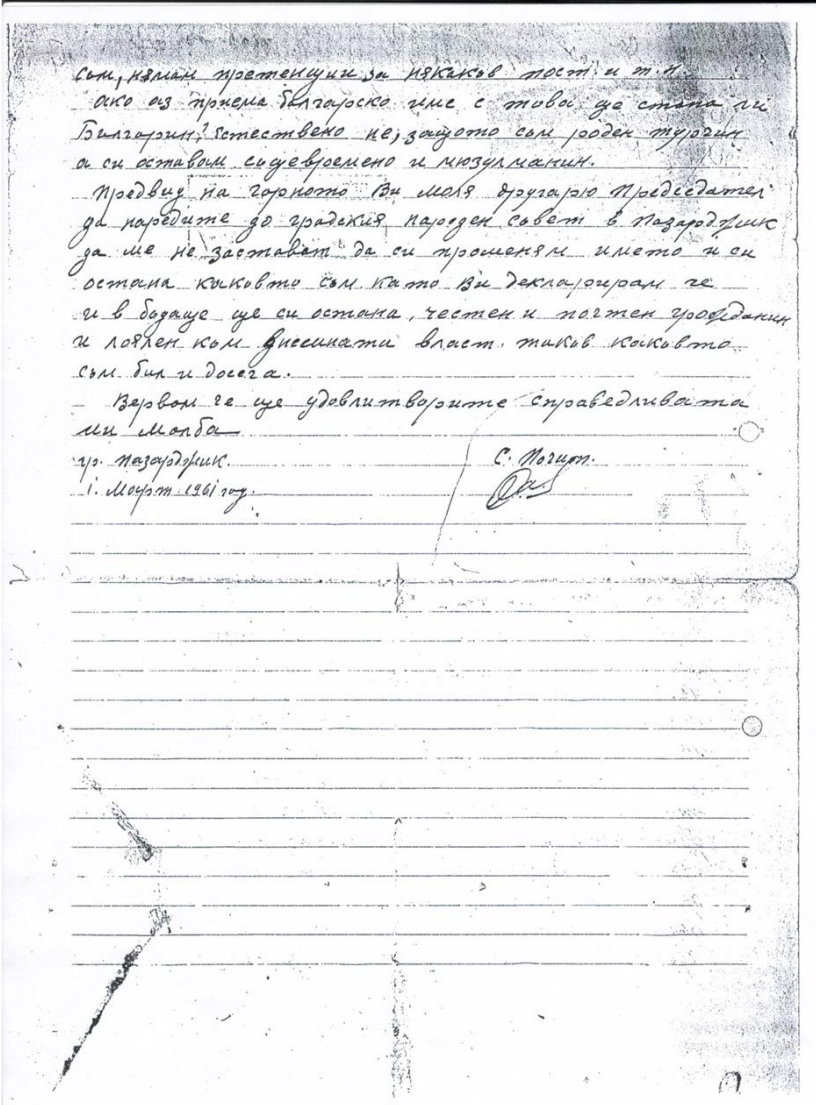 съм, нямам претенции за някакъв пост и т.н.
ако аз приема българско име с това ще стана ли
Българин? Естествено не, защото съм роден турчин
а си оставам същевремено и мюзулманин.
Предвид на горното Ви моля другарю Председател
да наредите до градския народен съвет в Пазарджик
да ме не заставят да си променям името и си
остана какъвто съм като Ви декларирам че
и в бъдаще ще си остана, честен и почтен гражданин
и лоялен към власт. такъв какъвто
съм бил и досега.
Вервам че ще удовлитворите справедливата
ми молба
гр. Пазарджик.
С. Почит.
1. Март 1961 год.